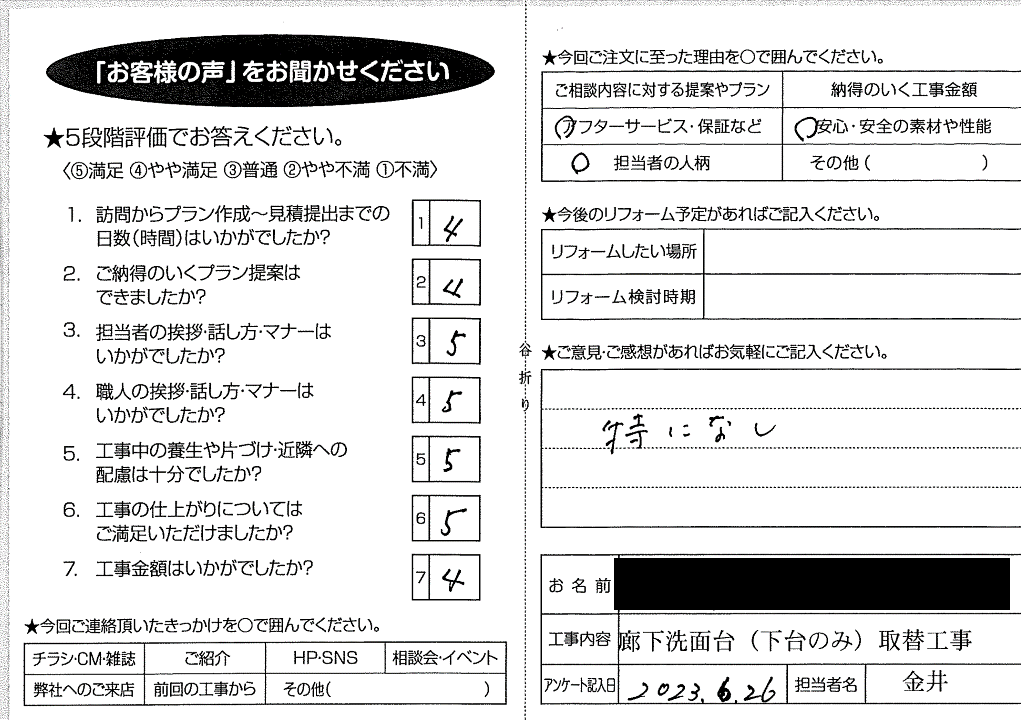 「お客様の声」をお聞かせください
★5段階評価でお答えください。
〈⑤満足 ④やや満足 ③普通 ②やや不満 ①不満〉
1. 訪問からプラン作成～見積提出までの
日数(時間)はいかがでしたか?
1 4
2. ご納得のいくプラン提案は
できましたか?
2 4
3. 担当者の挨拶・話し方・マナーは
いかがでしたか?
3 5
4. 職人の挨拶・話し方・マナーは
いかがでしたか?
4 5
5. 工事中の養生や片づけ・近隣への
配慮は十分でしたか?
5 5
6. 工事の仕上がりについては
ご満足いただけましたか?
6 5
7. 工事金額はいかがでしたか?
7 4
★今回ご連絡頂いたきっかけを○で囲んでください。
チラシ・CM・雑誌 ご紹介 HP・SNS 相談会・イベント
弊社へのご来店 前回の工事から その他( )
谷折り
★今回ご注文に至った理由を○で囲んでください。
ご相談内容に対する提案やプラン 納得のいく工事金額
アフターサービス・保証など 安心・安全の素材や性能
担当者の人柄 その他( )
★今後のリフォーム予定があればご記入ください。
リフォームしたい場所
リフォーム検討時期
★ご意見・ご感想があればお気軽にご記入ください。
特になし
お名前
工事内容 廊下洗面台（下台のみ）取替工事
アンケート記入日 2023.6.26 担当者名 金井